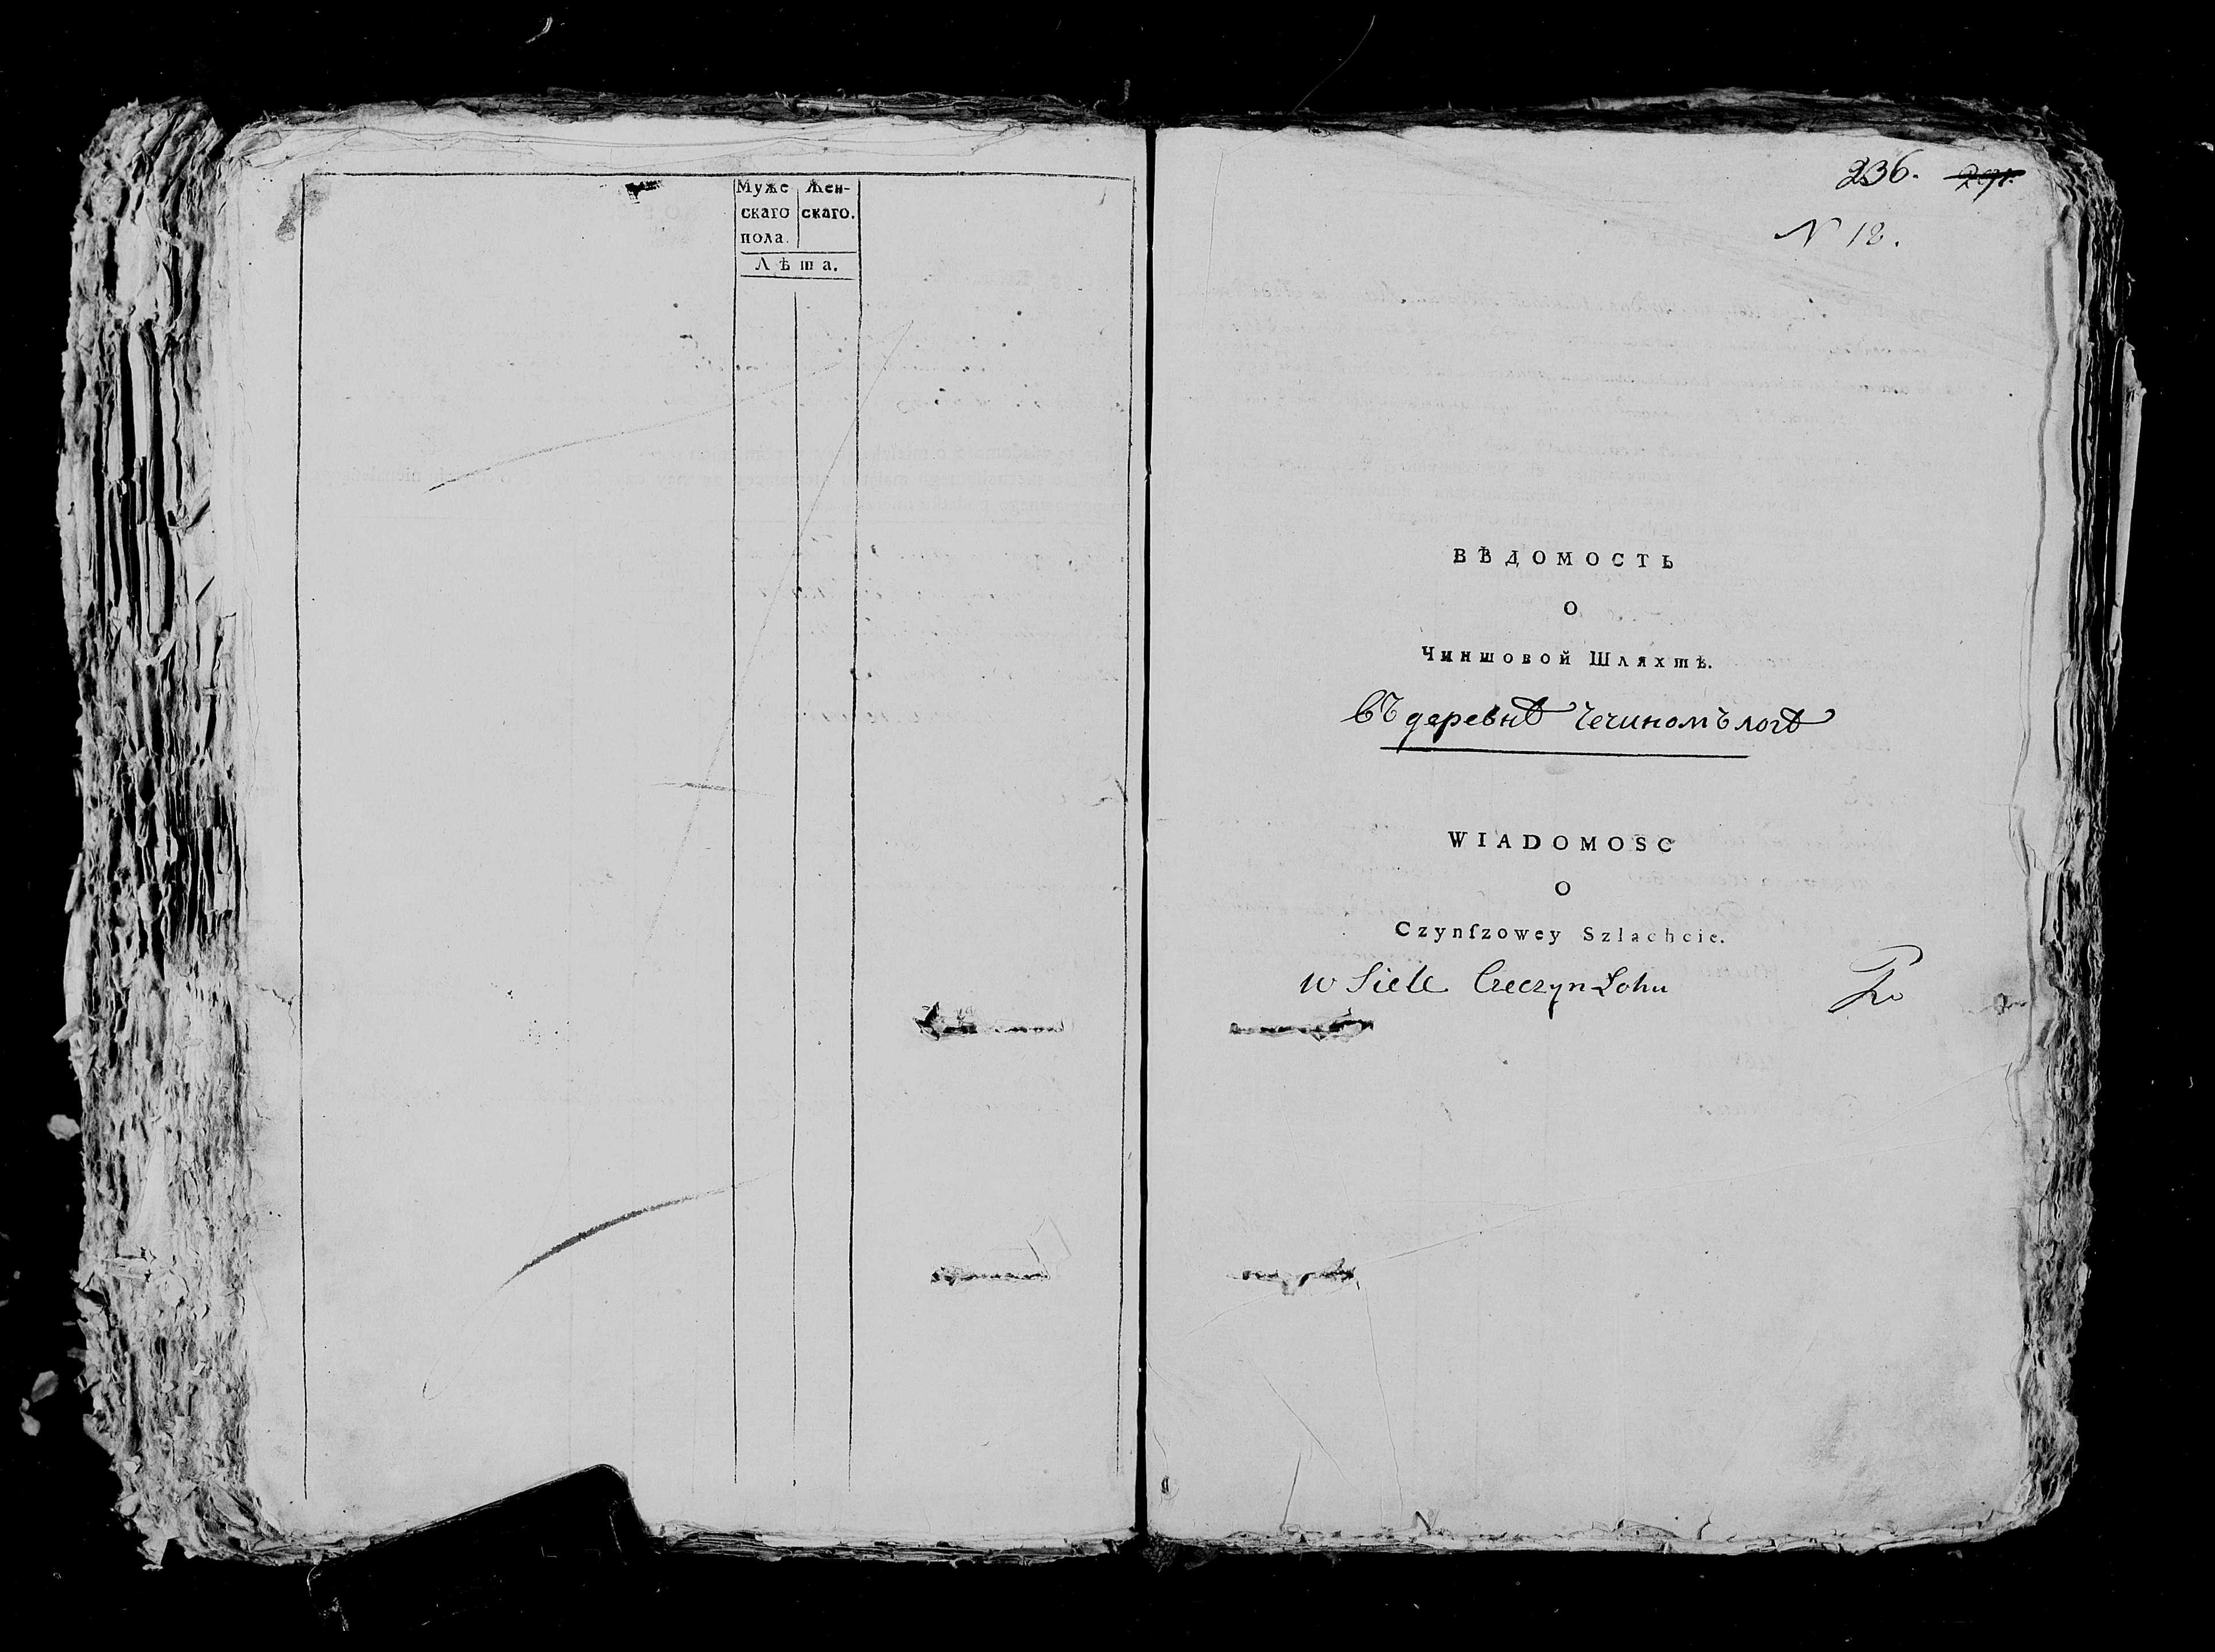 Муже Жен-
скаго скаго.
пола.
Лѣта.
236.
N 18.
ВѢДОМОСТЬ
О
Чиншовой Шляхтѣ.
въ деревнѣ Чечиномъ логѣ
WIADOMOSC
O
Czynſzowey Szlachcie.
w Siele Czeczyn-Łohu